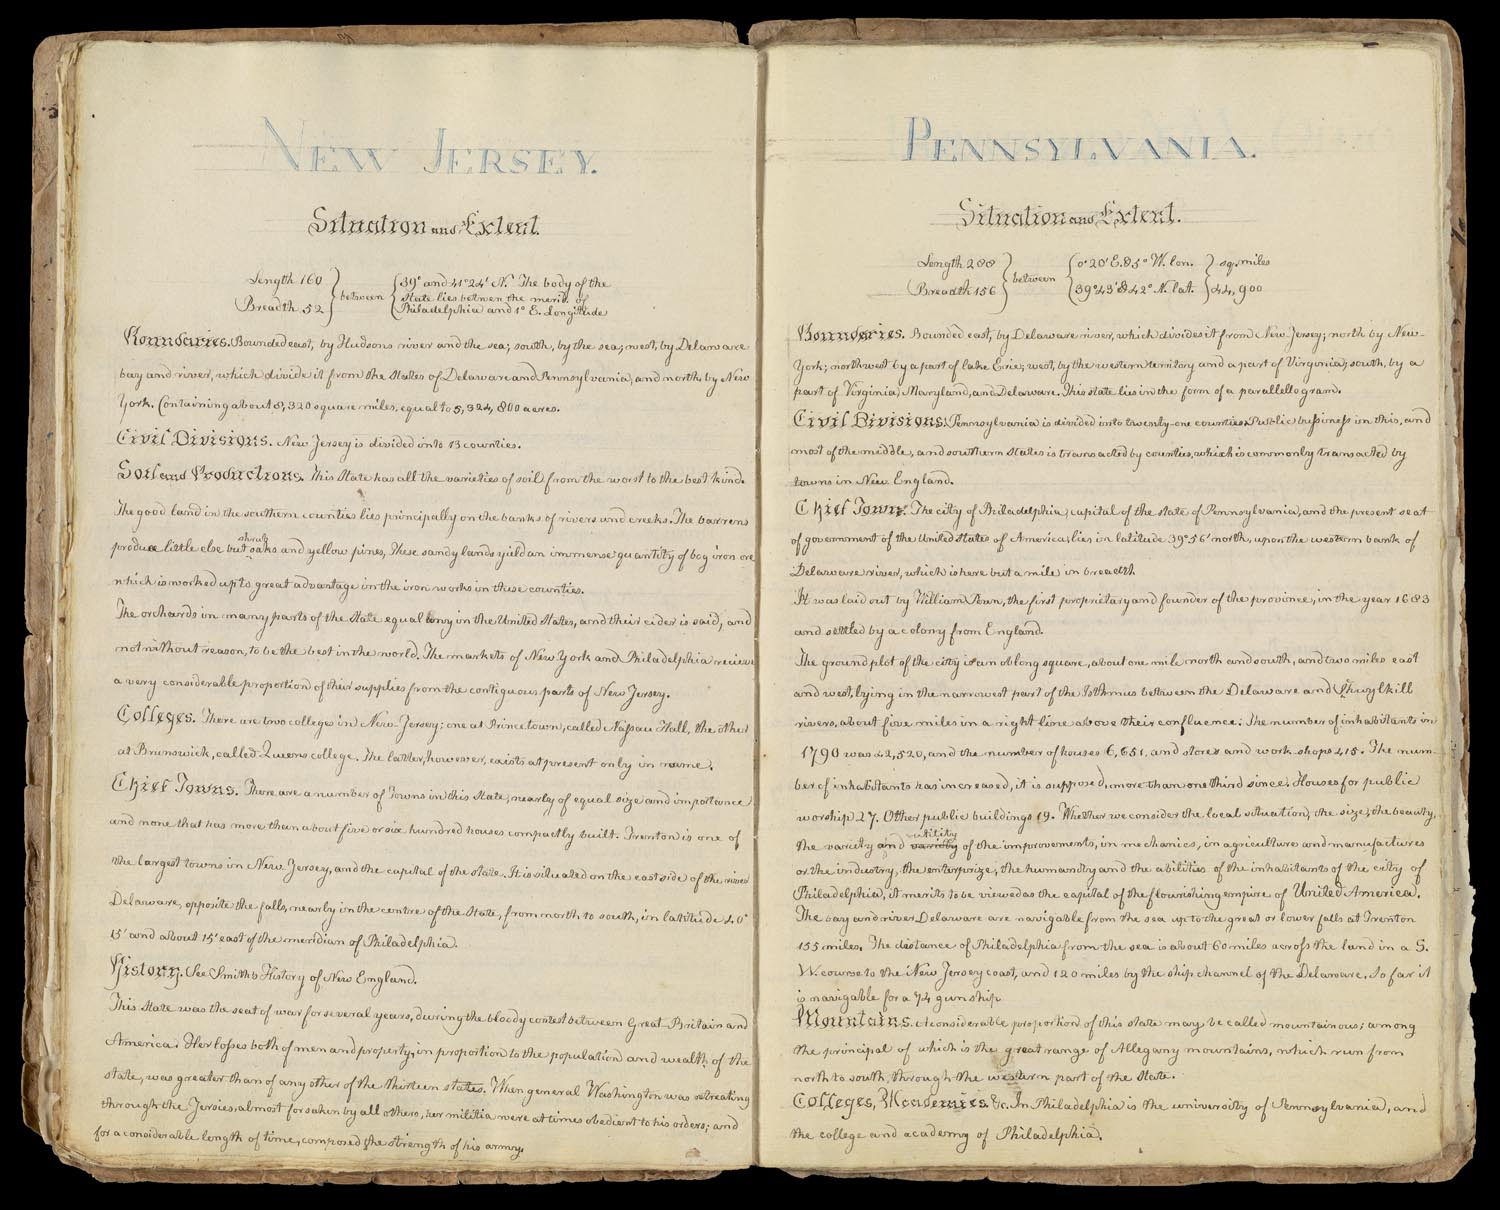 NEW JERSEY.
Situation and Extent.
Length 160 } between { 39° and 41°24' N. The body of the
State lies between the merid. of
Breadth 52 Philadelphia and 1° E. Longitude
Boundaries. Bounded east, by Hudsons river and the sea; south, by the sea; west, by Delaware
bay and river, which divide it from the States of Delaware and Pennsylvania; and north, by New
York. Containing about 8,320 square miles, equal to 5,324,800 acres.
Civil Divisions. New Jersey is divided into 13 counties.
Soil and Productions. This State has all the varieties of soil from the worst to the best kind.
The good land in the southern counties lies principally on the banks of rivers and creeks. The barrens
produce little else but shrub oaks and yellow pines, these sandy lands yield an immense quantity of bog iron ore
which is worked up to great advantage in the iron works in these counties.
The orchards in many parts of the State equal any in the United States, and their cider is said, and
not without reason, to be the best in the world. The markets of New York and Philadelphia recieve
a very considerable proportion of their supplies from the contiguous parts of New Jersey.
Colleges. There are two colleges in New-Jersey: one at Princetown, called Nassau Hall, the other
at Brunswick, called Queens college. The latter, however, exists at present only in name.
Chief Towns. There are a number of Towns in this State, nearly of equal size and importance
and none that has more than about five or six hundred houses compactly built. Trenton is one of
the largest towns in New Jersey, and the capital of the state. It is situated on the east side of the river
Delaware, opposite the falls, nearly in the centre of the State, from north to south, in latitude 40°
15' and about 15' east of the meridian of Philadelphia.
History. See Smith's History of New England.
This State was the seat of war for several years, during the bloody contest between Great-Britain and
America. Her losses both of men and property, in proportion to the population and wealth of the
state, was greater than of any other of the thirteen states. When general Washington was retreating
through the Jersies, almost forsaken by all others, her militia were at times obedient to his orders; and
for a considerable length of time, composed the strength of his army.
PENNSYLVANIA.
Situation and Extent.
Length 288 } between { 0°20' E. & 5° W. lon. } sq. miles
Breadth 156 39°43' & 42° N. lat. 44,900
Bounderies. Bounded east, by Delaware river, which divides it from New Jersey; north by New-
York; northwest by a part of lake Erie; west, by the western territory and a part of Virginia; south, by a
part of Virginia, Maryland, and Delaware. This state lies in the form of a parallellogram.
Civil Divisions. Pennsylvania is divided into twenty-one counties. Public bussiness in this, and
most of the middle, and southern states is transacted by counties, which is commonly transacted by
towns in New England.
Chief Towns. The city of Philadelphia, capital of the state of Pennsylvania, and the present seat
of government of the United States of America, lies in latitude 39°56' north, upon the western bank of
Delaware river, which is here but a mile in breadth.
It was laid out by William Penn, the first proprietary and founder of the province, in the year 1683
and settled by a colony from England.
The ground plot of the city is an oblong square, about one mile north and south, and two miles east
and west, lying in the narrowest part of the Isthmus between the Delaware and Schuylkill
rivers, about five miles in a right line above their confluence. The number of inhabitants in
1790 was 42,520, and the number of houses 6,651, and stores and work shops 415. The num-
ber of inhabitants has increased, it is supposed, more than one third since. Houses for public
worship 27. Other public buildings 19. Whether we consider the local situation, the size, the beauty,
the variety and variety utility of the improvements, in mechanics, in agriculture and manufactures
or the industry, the enterprize, the humanity and the abilities of the inhabitants of the city of
Philadelphia, it merits to be viewed as the capital of the flourishing empire of United America.
The bay and river Delaware are navigable from the sea up to the great or lower falls at Trenton
155 miles. The distance of Philadelphia from the sea is about 60 miles across the land in a S.
W. course to the New Jersey coast, and 120 miles by the ship channel of the Delaware. So far it
is navigable for a 74 gun ship.
Mountains. A considerable proportion of this state may be called mountainous; among
the principal of which is the great range of Allegany mountains, which run from
north to south, through the western part of the State.
Colleges, Academies. &c. In Philadelphia is the university of Pennsylvania, and
the college and academy of Philadelphia.